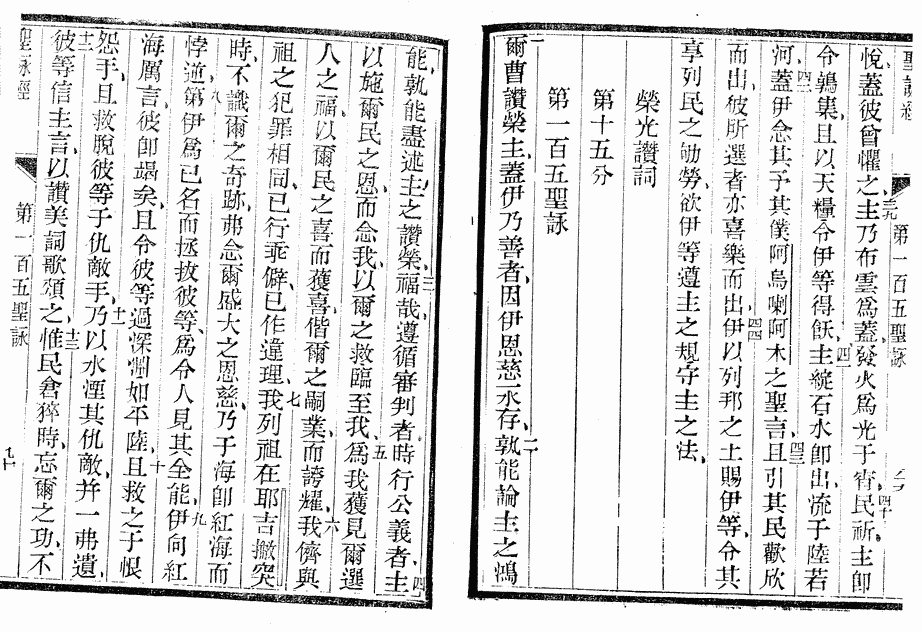 聖詠經 第一百五聖詠
悅、蓋彼曾懼之、三九主乃布雲爲蓋、發火爲光于宵、四十民祈、主卽
令鶉集、且以天糧令伊等得飫、四一主綻石、水卽出、流于陸若
河、四二蓋伊念其予其僕阿烏喇阿木之聖言、四三且引其民歡欣
而出、彼所選者亦喜樂而出、四四伊以列邦之土賜伊等、令其
享列民之劬勞、欲伊等遵主之規、守主之法、
榮光讚詞
第十五分
第一百五聖詠
一爾曹讚榮主、蓋伊乃善者、因伊恩慈永存、二孰能論主之鴻
能、孰能盡述主之讚榮、三福哉、遵循審判者、時行公義者、四主
以施爾民之恩而念我、以爾之救臨至我、五爲我獲見爾選
人之福、以爾民之喜而獲喜、偕爾之嗣業而誇耀、六我儕與
祖之犯罪相同、已行乖僻、已作違理、七我列祖在耶吉撒突
時、不識爾之奇跡、弗念爾盛大之恩慈、乃于海卽紅海而
悖逆、八第伊爲己名而拯救彼等、爲令人見其全能、九伊向紅
海厲言、彼卽竭矣、且令彼等過深淵如平陸、十且救之于恨
怨手、且救脫彼等于仇敵手、十一乃以水湮其仇敵、幷一弗遺、
十二彼等信主言、以讚美詞歌頌之、十三惟民倉猝時、忘爾之功、不
聖詠經 第一百五聖詠